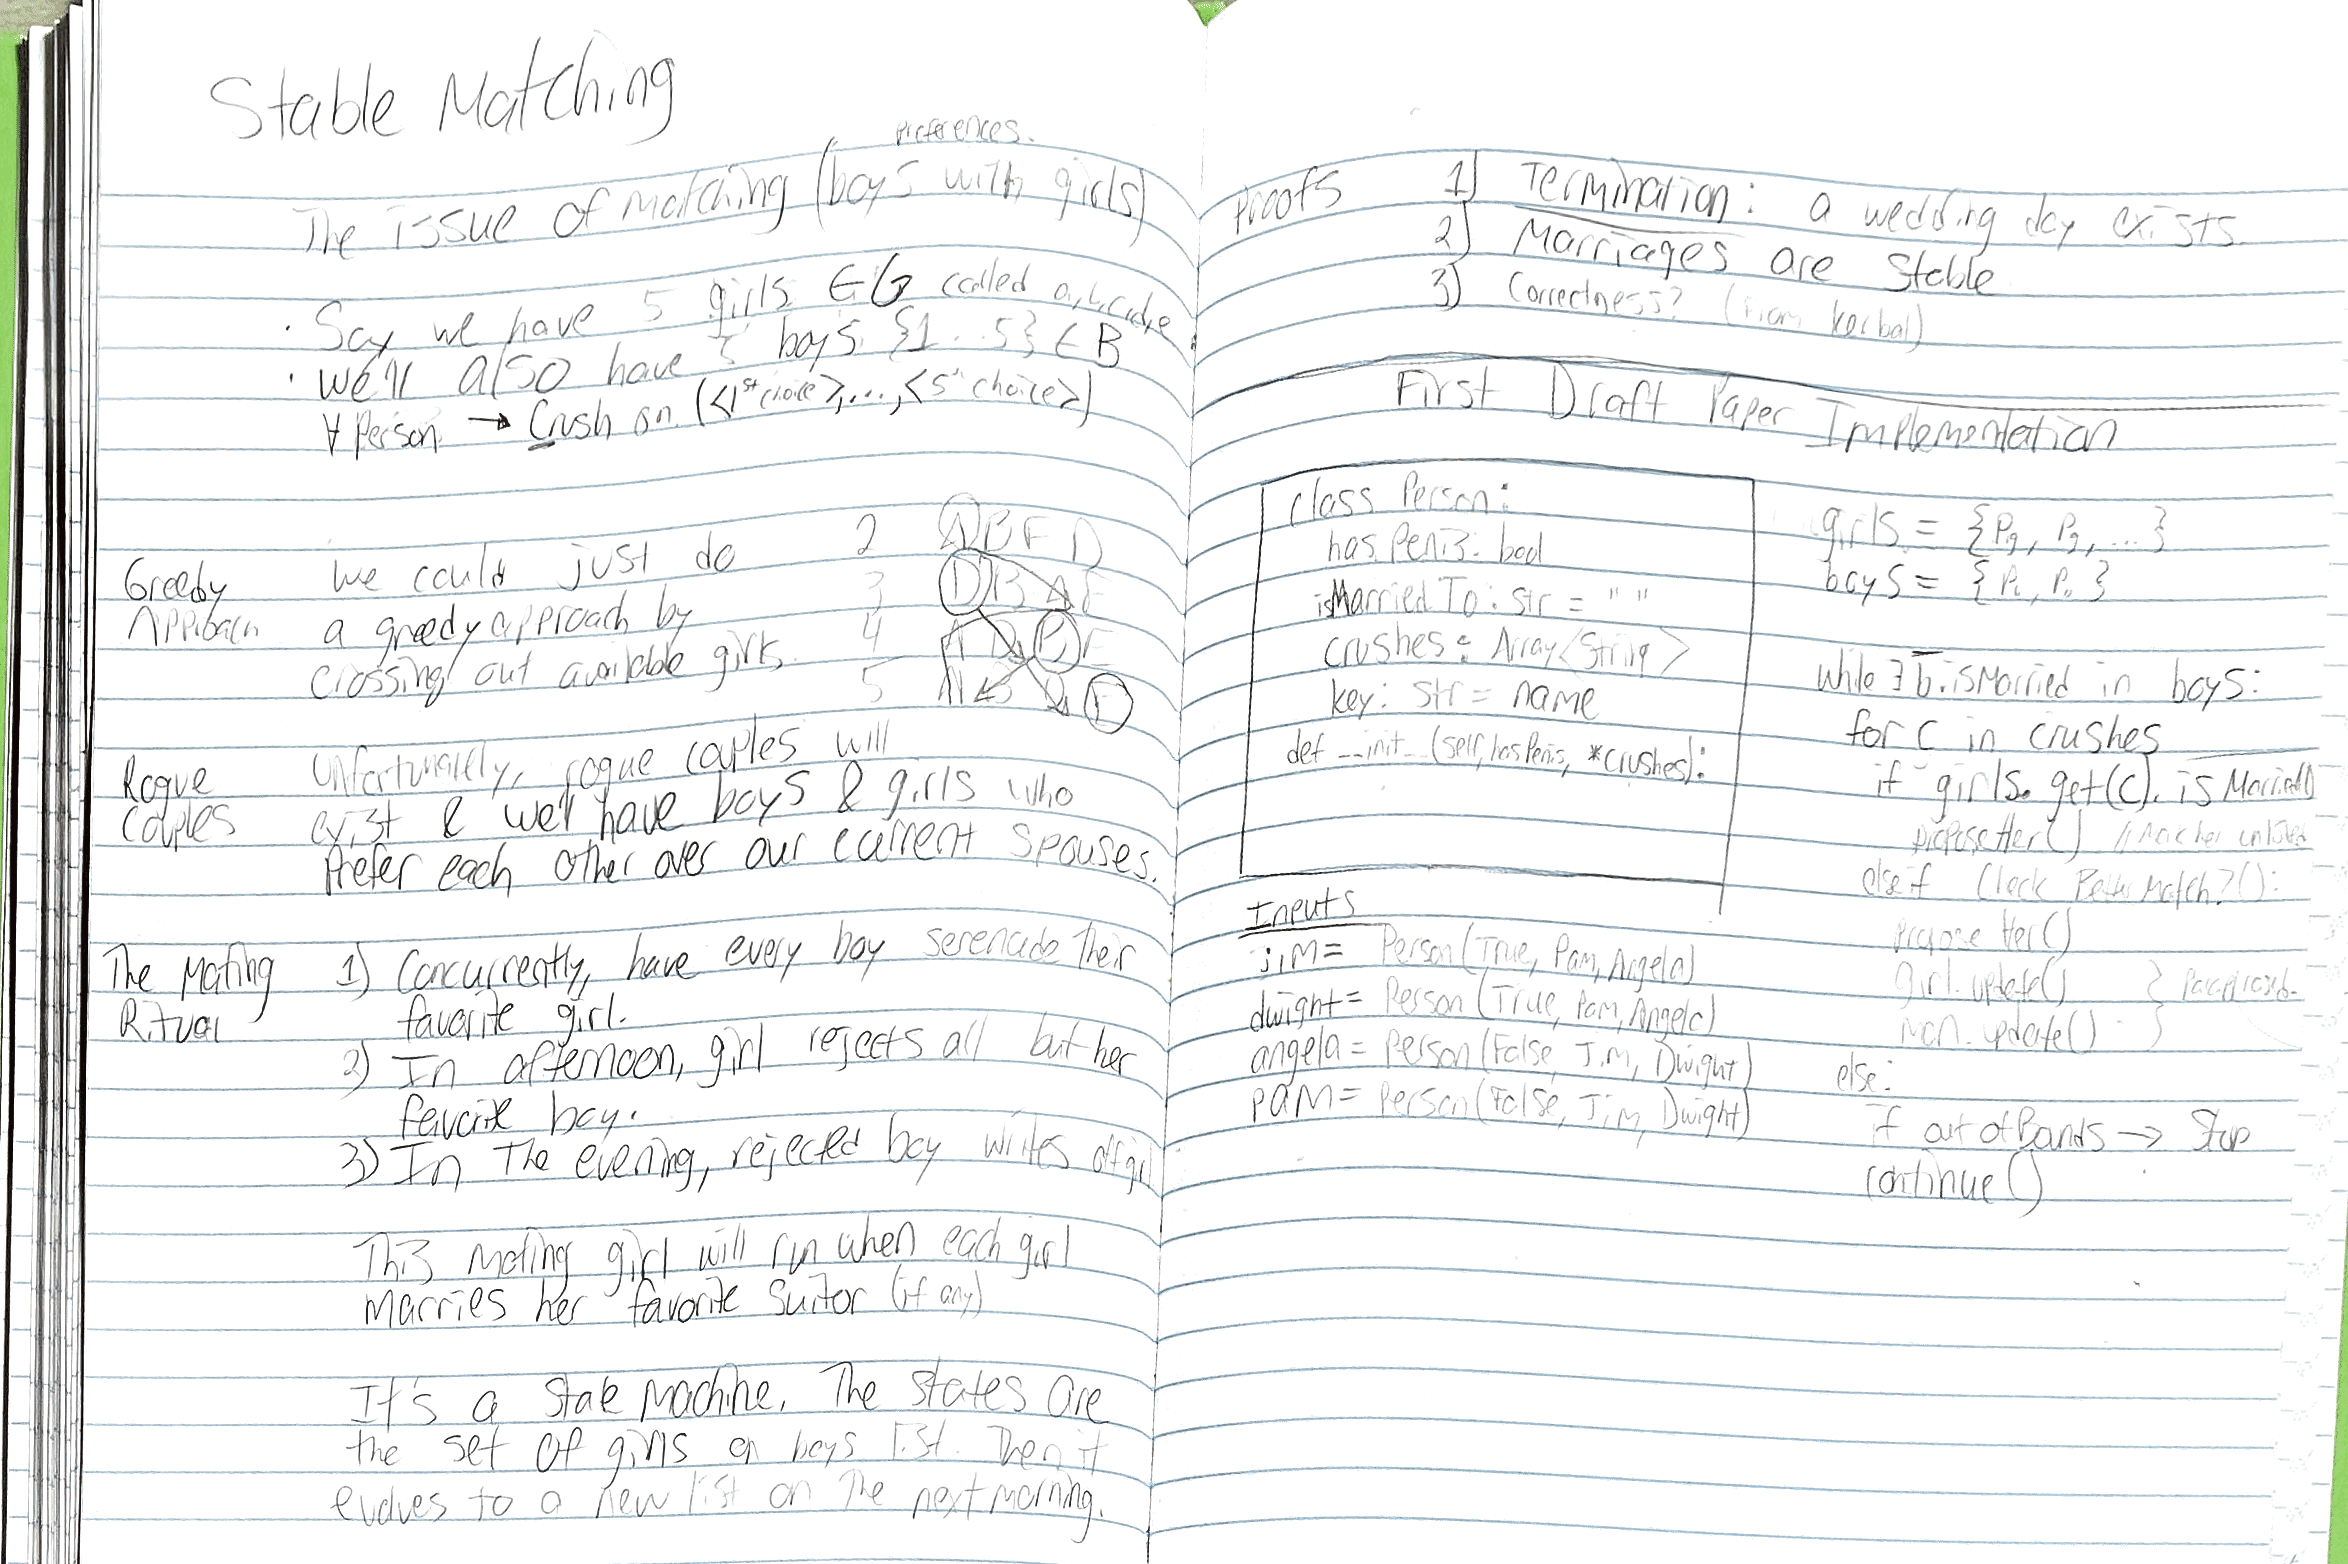 Stable Matching
preferences.
The issue of matching (boys with girls)
· Say we have 5 girls ∈ G called a,b,c,d,e
· We'll also have 5 boys {1...5} ∈ B
∀ Person → Crush on (<1st choice>,...,<5th choice>)
Greedy Approach
We could just do
a greedy approach by
crossing out available girls.
2 A B E D
3 D B A E
4 A D B E
5 A B D E
Rogue Couples
Unfortunately, rogue couples will
exist & we'll have boys & girls who
Prefer each other over our current spouses.
The Mating Ritual
1) Concurrently, have every boy serenade their
favorite girl.
2) In afternoon, girl rejects all but her
favorite boy.
3) In the evening, rejected boy writes off girl
This mating girl will run when each girl
marries her favorite suitor (if any)
It's a state machine. The states are
the set of girls on boys list. Then it
evolves to a new list on the next morning.
Proofs
1) Termination: a wedding day exists
2) Marriages are Stable
3) Correctness? (from
First Draft Paper Implementation
class Person:
hasPenis: bool
isMarriedTo: str = " "
crushes: Array<String>
key: str = name
def __init__(self, hasPenis, *crushes):
Inputs
jim = Person(True, Pam, Angela)
dwight = Person(True, Pam, Angela)
angela = Person(False, Jim, Dwight)
pam = Person(False, Jim, Dwight)
girls = {Pg, Pg, ...}
boys = {
while ∃ b.isMarried in boys:
for c in crushes
if girls.get(c).isMarried()
proposeHer() //
else if Check Better Match?():
propose Her()
girl.update()
man.update()
else:
if out of Bands → Stop
continue()